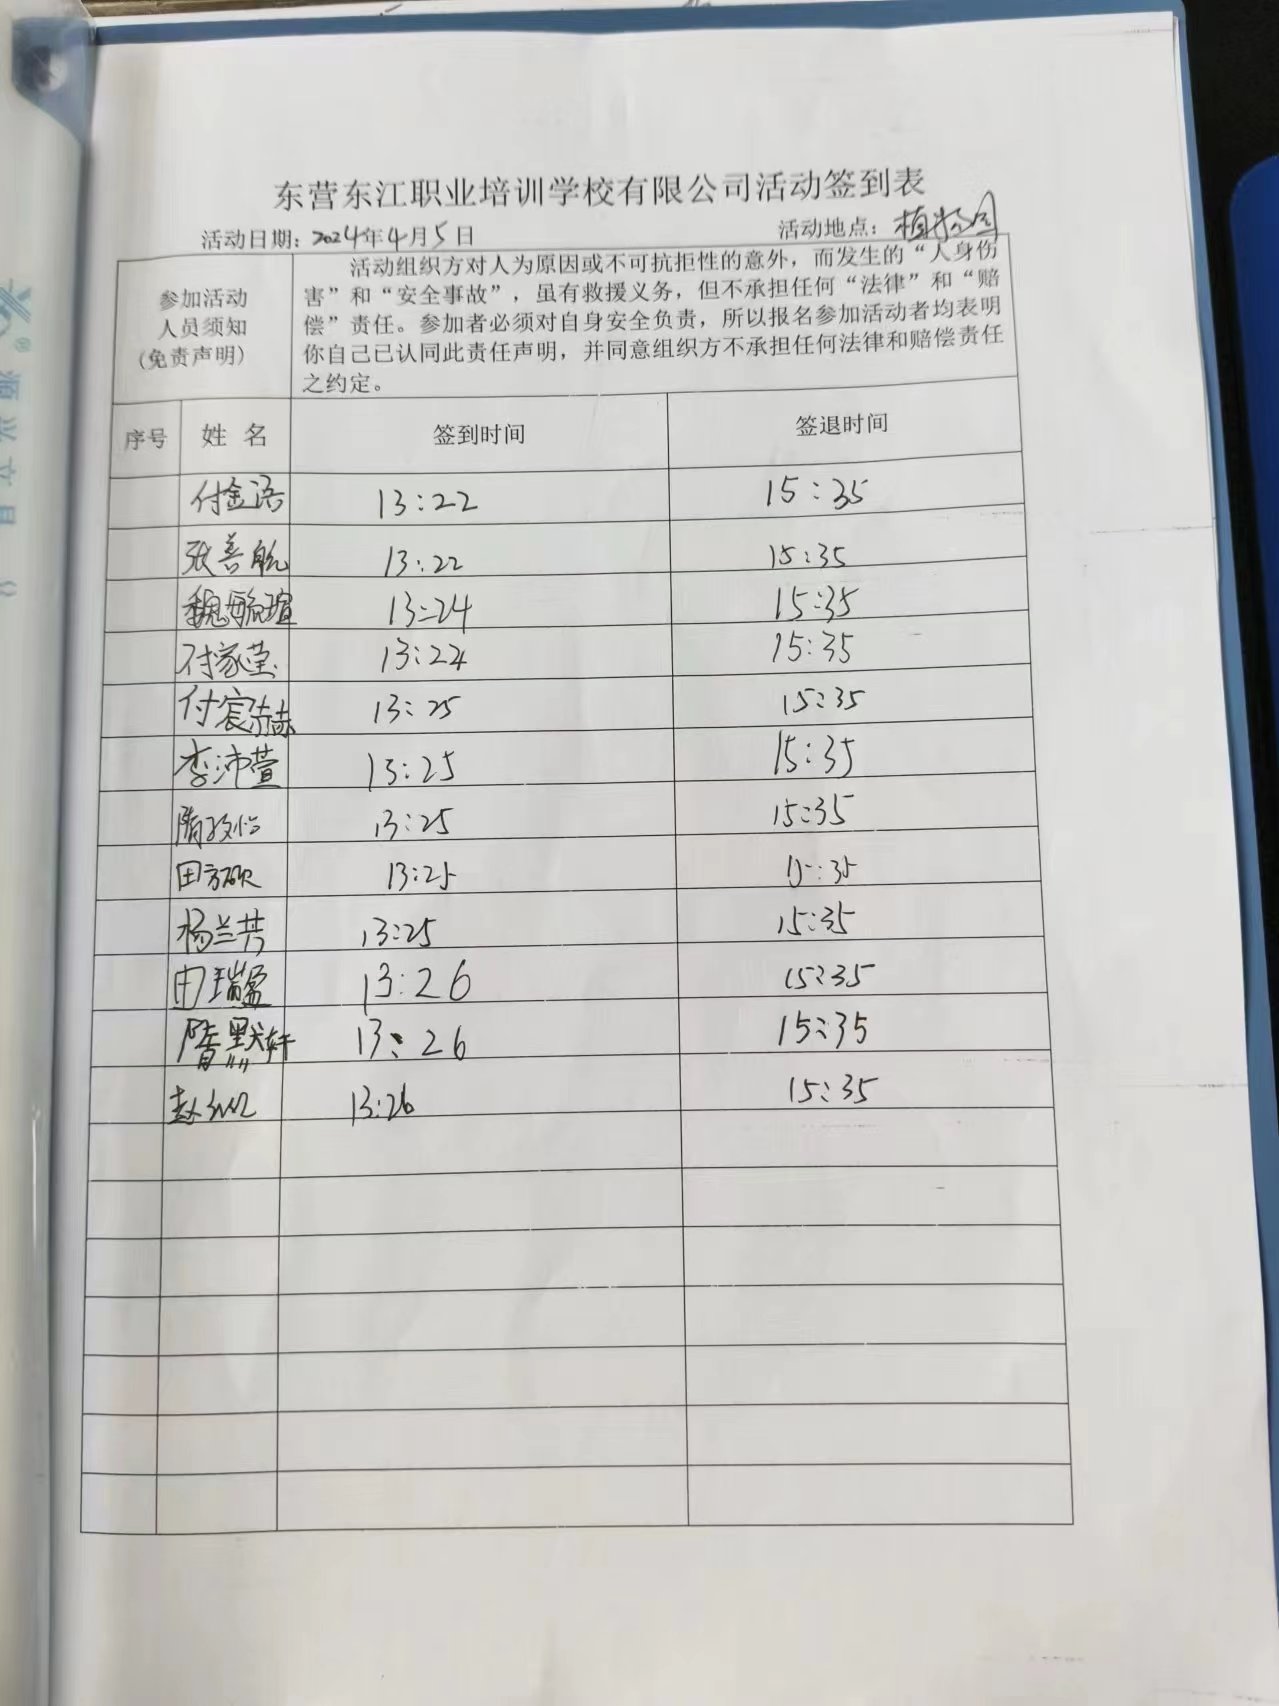 东营东江职业培训学校有限公司活动签到表
活动日期：2024年4月5日 活动地点：植物园
参加活动
人员须知
（免责声明）
活动组织方对人为原因或不可抗拒性的意外，而发生的“人身伤
害”和“安全事故”，虽有救援义务，但不承担任何“法律”和“赔
偿”责任。参加者必须对自身安全负责，所以报名参加活动者均表明
你自己已认同此责任声明，并同意组织方不承担任何法律和赔偿责任
之约定。
序号 姓 名 签到时间 签退时间
付金语 13:22 15:35
张善航 13:22 15:35
魏毓瑄 13:24 15:35
付家莹 13:24 15:35
付宸赫 13:25 15:35
李沛萱 13:25 15:35
13:25 15:35
田方硕 13:25 15:35
杨兰共 13:25 15:35
田瑞盈 13:26 15:35
隋默轩 13:26 15:35
赵 13:26 15:35